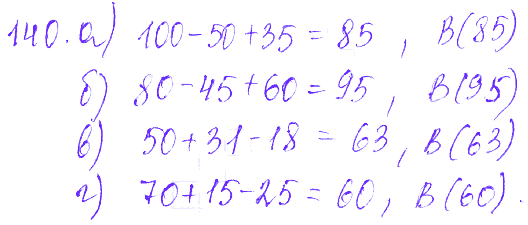 140. а) 100-50+35=85, В(85)
б) 80-45+60=95, В(95)
в) 50+31-18=63, В(63)
г) 70+15-25=60, В(60).